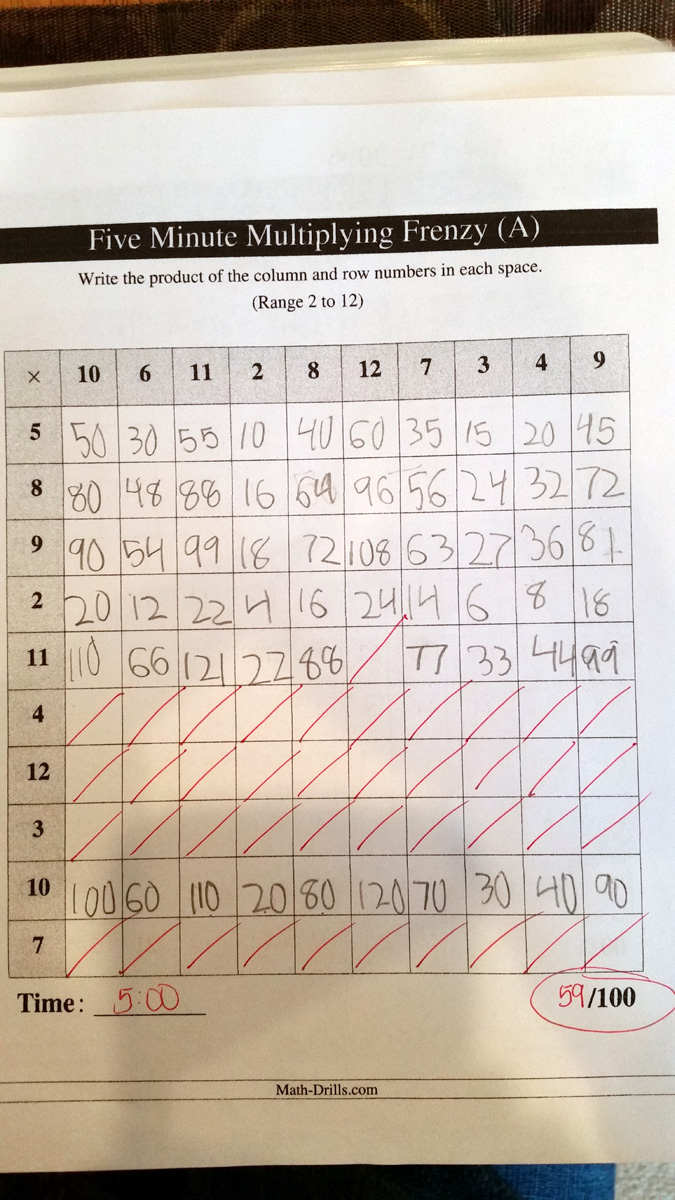 Five Minute Multiplying Frenzy (A)
Write the product of the column and row numbers in each space.
(Range 2 to 12)
× 10 6 11 2 8 12 7 3 4 9
5 50 30 55 10 40 60 35 15 20 45
8 80 48 88 16 64 96 56 24 32 72
9 90 54 99 18 72 108 63 27 36 81
2 20 12 22 4 16 24 14 6 8 18
11 110 66 121 22 88 77 33 44 99
4
12
3
10 100 60 110 20 80 120 70 30 40 90
7
Time: 5:00 59/100
Math-Drills.com